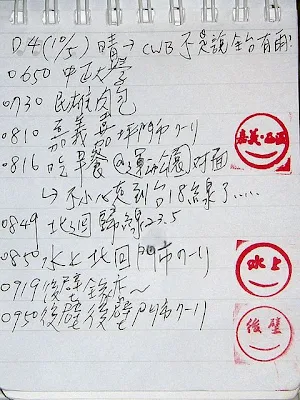 D4(10/5) 晴→CWB不是說全台有雨!
0650 中正大學
0730 民雄肉包
0810 嘉義嘉坪門市7-11
0816 吃早餐@運動公園对面
↳不小心走到台18線了.....
0849 北回歸線23.5
0850 水上北回門市7-11
0919 後壁
0950 後壁後壁門市7-11
嘉義
水上
後壁